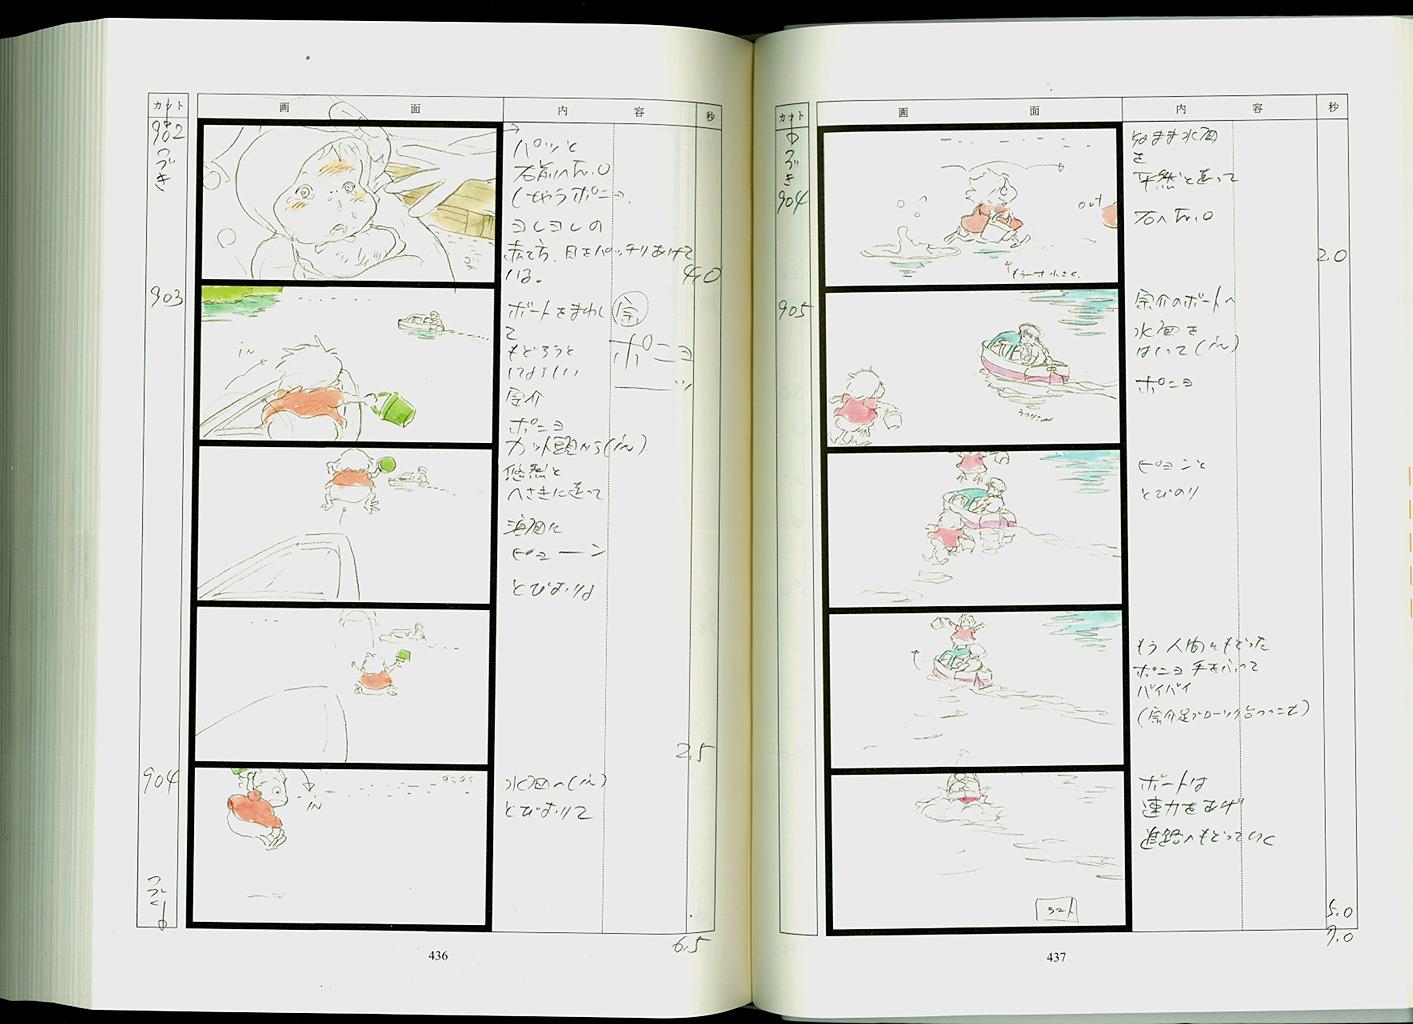 カット
画 面
内 容
秒
902
つづき
パッと
右前へ右へO
ポニョ。
ヨレヨレの
赤ん坊、目をパッチリあけて
いる。
4.0
903
IN
ボートをまわし
て
もどろうと
宗介
宗
ポニョ
ーッ
ポニョ
カット頭から(in)
悠然と
へさきに立って
海面に
ピューーン
とびおりる
2.5
904
IN
水面へ(in)
とびおりて
つづく
6.5
436
カット
画 面
内 容
秒
つづき
904
out
もう一寸小さく
水面
を
平然と走って
右へ
2.0
905
宗介のボートへ
水面を
はしって(in)
ポニョ
ピョンと
とびのり
もう人間にもどった
ポニョ手をふって
バイバイ
ボートは
速力をあげ
進路へもどっていく
ラスト
5.0
7.0
437